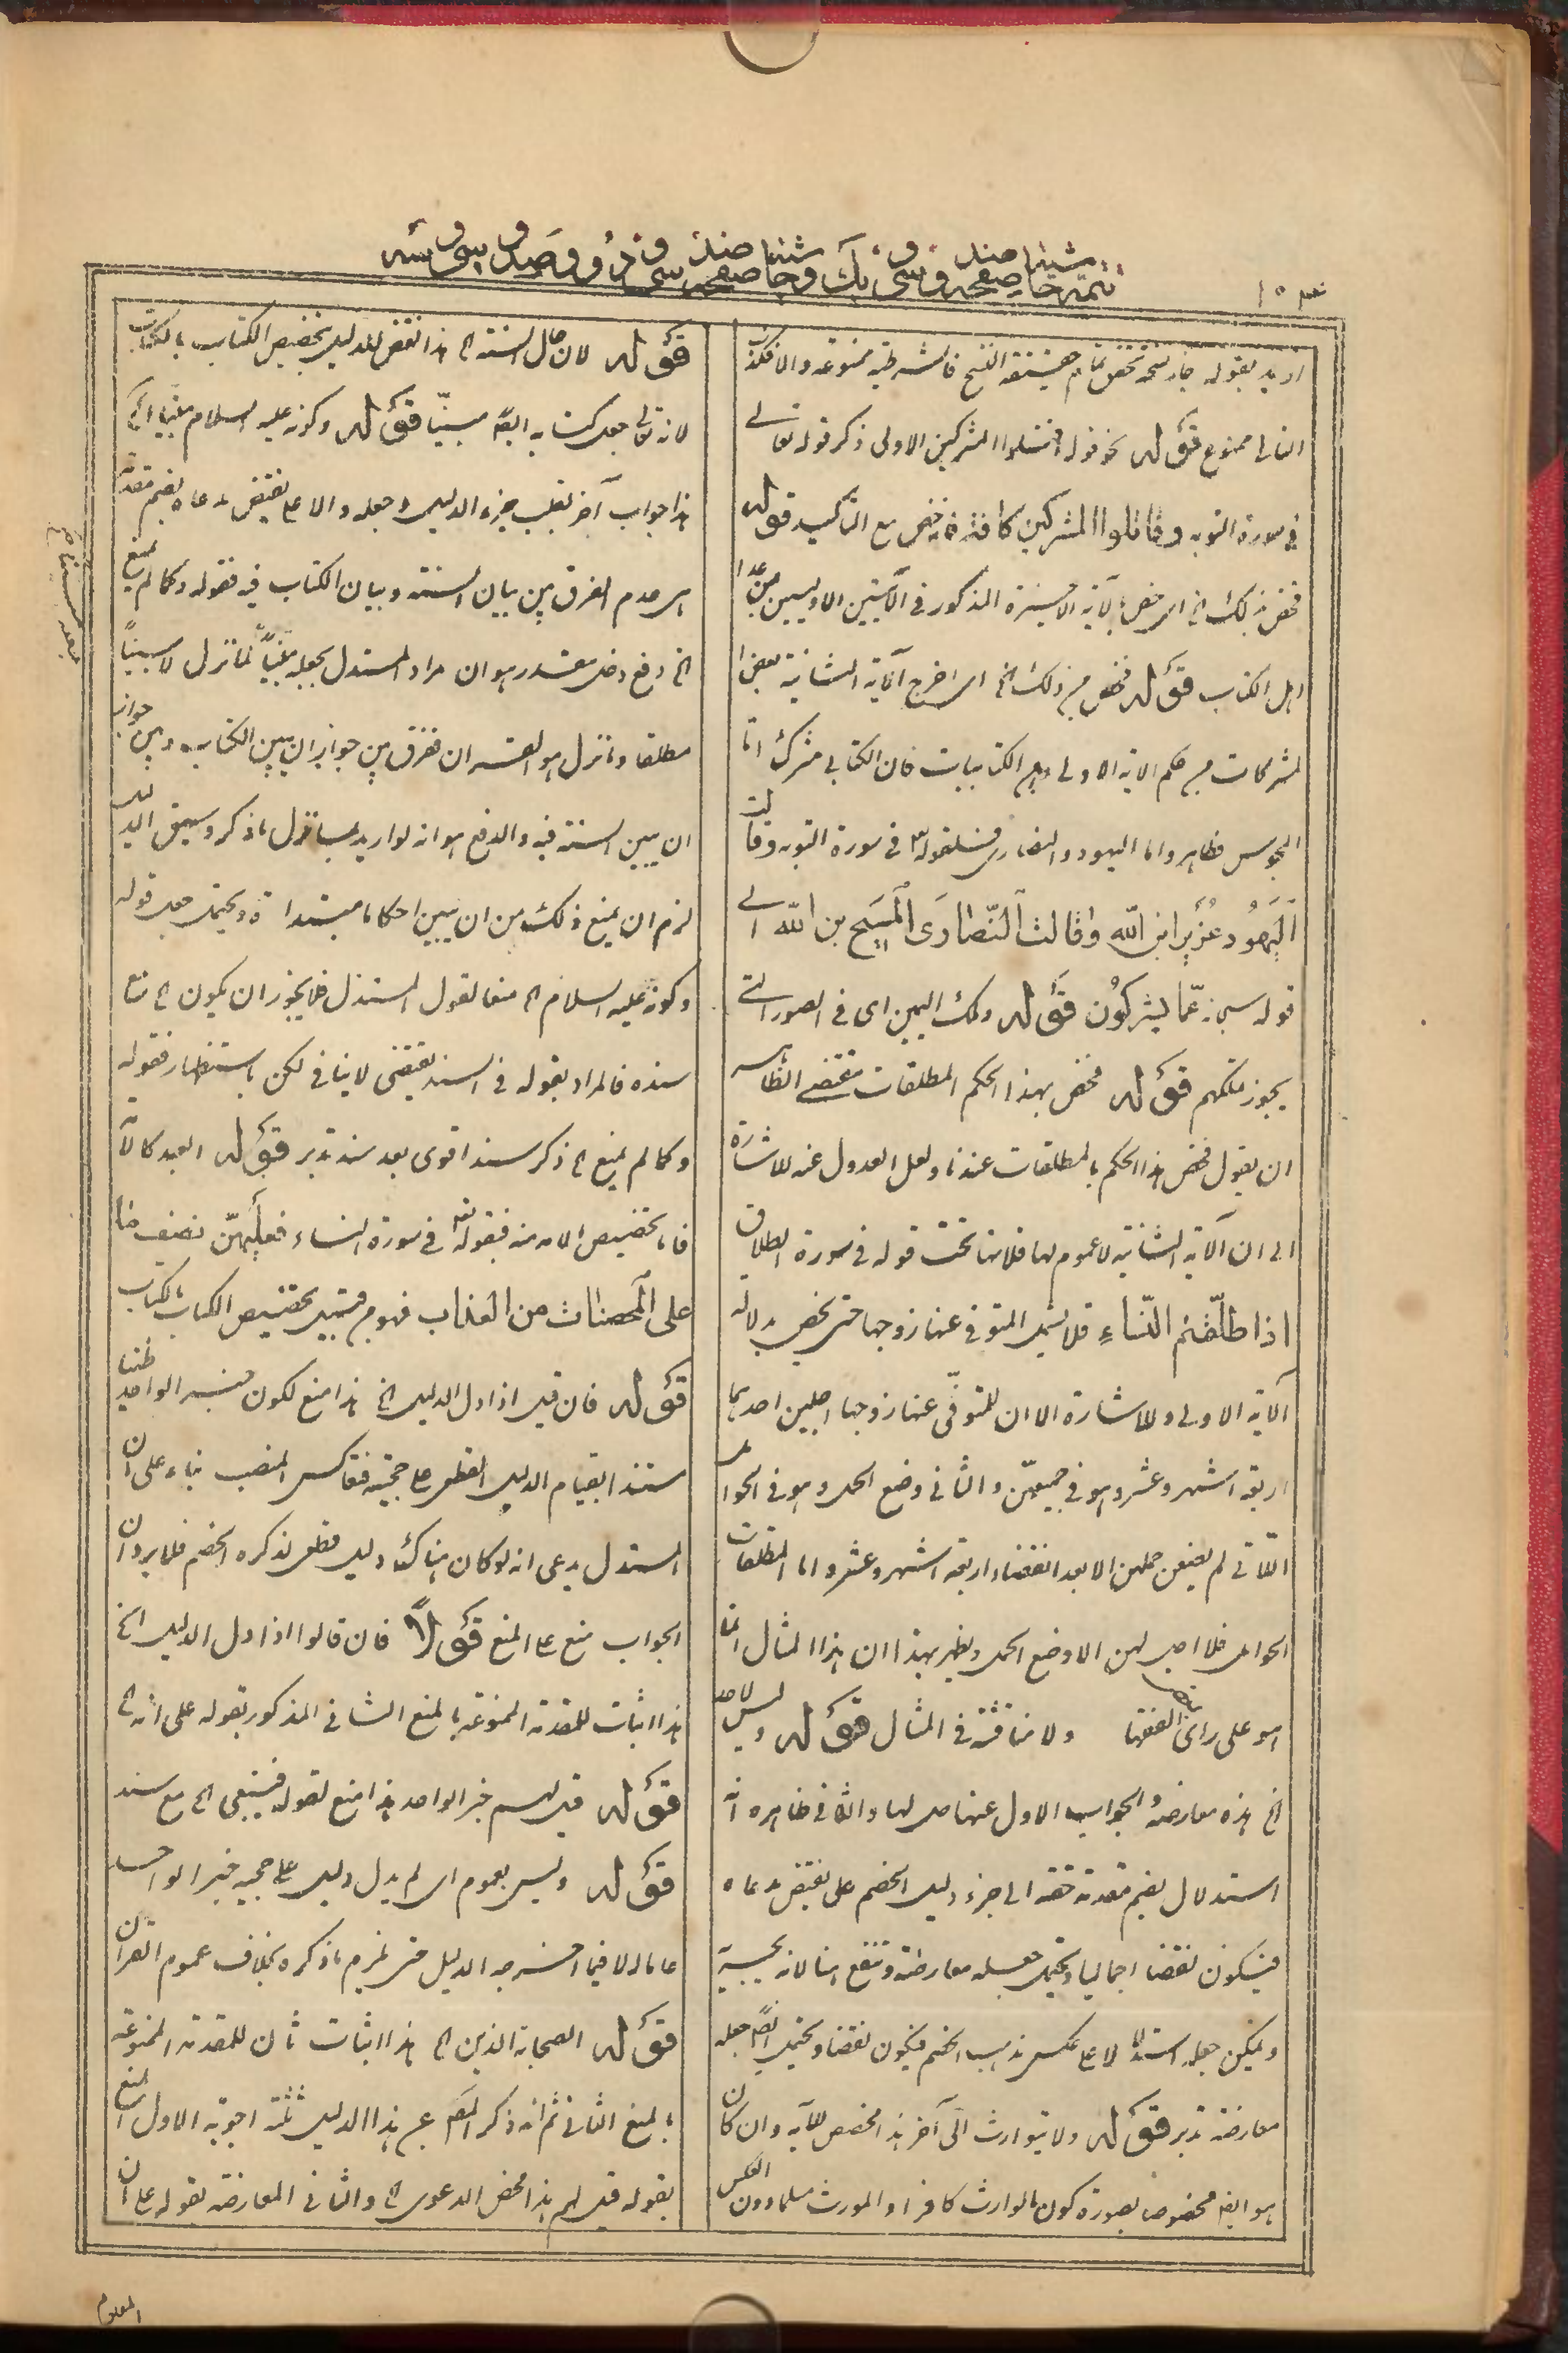 اريد بقوله جاز نسخه تحقق تمام حقيقة النسخ فالشرطية ممنوعة والا فكذب
التالى ممنوع قوله نحو قوله اقتلوا المشركين الاولى ذكر قوله تعالى
فى سورة التوبه وقاتلوا المشركين كافة فانه خص مع التاكيد قوله
فخص بذلك الخ اى خص بالآية الاخيرة المذكور فى الآيتين الاوليين من عدا
اهل الكتاب قوله فخص من ذلك الخ اى اخرج الآية الثانية بعض ا
لمشركات من حكم الاية الاولى وهى الكتابيات فان الكتابى مشرك اما
المجوس فظاهر واما اليهود والنصارى فلقوله فى سورة التوبه وقالت
اليهود عزير ابن الله وقالت النصارى المسيح بن الله الى
قوله سبحانه عما يشركون قوله وملك اليمين اى فى الصور التى
يجوز ملكهم قوله فخص بهذا الحكم المطلقات مقتضى الظاهر
ان يقول فخص هذا الحكم بالمطلقات عندنا ولعل العدول عنه للاشارة
الى ان الآية الثانية لا عموم لها فلانها تحت قوله فى سورة الطلاق
اذا طلقتم النساء فلا تشمل المتوفى عنها زوجها حتى يخص بدلالة
الآية الاولى وللاشارة الا ان للمتوفى عنها زوجها اجلين احدهما
اربعة اشهر وعشر وهو فى جميعهن والثانى وضع الحمل وهو فى الحوامل
اللاتى لم يضعن حملهن الا بعد انقضاء اربعة اشهر وعشر واما المطلقات
الحوامل فلا اجل لهن الا وضع الحمل ويظهر بهذا ان هذا المثال انما
هو على راى الفقها ولا مناقشة فى المثال قوله وليس لاحد
الخ هذه معارضة والجواب الاول عنها حل لها والثانى ظاهره انه
استدلال بضم مقدمة حقة الى جزء دليل الخصم على نقيض مدعاه
فيكون نقضا اجماليا ويحتمل جعله معارضة
ويمكن جعله استدلالا على عكس مذهب الخصم فيكون نقضا ويحتمل ايضا جعله
معارضة تدبر قوله ولا يتوارث الى آخر هذا مخصص للآية وان كان
هو ايضا مخصوصا بصورة كون الوارث كافرا والمورث مسلما دون العكس
قوله لان حال السنة الخ هذا نقض لدليل تخصيص الكتاب بالكتاب
لانه تعالى جعل كتابه ايضا مبينا قوله وكونه عليه السلام مبينا الخ
هذا جواب آخر بقلب جزء الدليل وجعله دالا على نقيض مدعاه بضم مقدمة
هى عدم الفرق بين بيان السنة وبيان الكتاب فيه فقوله وكما لم يمنع
الخ دفع دخل مقدر هو ان مراد المستدل بجعله مبينا لما نزل لا مبينا
مطلقا وما نزل هو القرآن ففرق بين جواز ان يبين الكتاب وبين جواز
ان يبين السنة فيه والدفع هو انه لو اريد بما نزل ما ذكر وسيق الدليل
لزم ان يمنع ذلك من ان يبين احكاما مبتدأة ويحتمل جعل قوله
وكونه عليه السلام الخ منعا لقول المستدل فلا يجوز ان يكون الخ مع
سنده فالمراد بقوله فى السند يقتضى لا ينافى لكن باستظهار فقوله
وكما لم يمنع الخ ذكر سند اقوى بعد سند تدبر قوله العبد كالأمة
فان تخصيص الامة منه فبقوله تعالى فى سورة النساء فعليهن نصف ما
على المحصنات من العذاب فهو من قبيل تخصيص الكتاب بالكتاب
قوله فان قيل اذا دل الدليل الخ هذا منع لكون خبر الواحد ظنيا
مستندا بقيام الدليل القطعى على حجيته فقد عكس المنصب بناء على ان
المستدل يدعى انه لو كان هناك دليل قطعى لذكره الخصم فلا يرد ان
الجواب منع على المنع قوله فان قالوا اذا دل الدليل الخ
هذا اثبات للمقدمة الممنوعة بالمنع الثانى المذكور بقوله على انه الخ
قوله قيل لهم خبر الواحد هذا منع لقوله فينبغى الخ مع سند
قوله وليس بعموم اى لم يدل دليل على حجية خبر الواحد
عاما الا فيما اخرجه الدليل حتى يلزم ما ذكره بخلاف عموم القرآن
قوله الصحابة الذين الخ هذا اثبات ثان للمقدمة الممنوعة
بالمنع الثانى ثم انه ذكر المص عن هذا الدليل ثلثة اجوبة الاول المنع
بقوله قيل لهم هذا محض الدعوى الخ والثانى المعارضة بقوله على ان
المعلوم